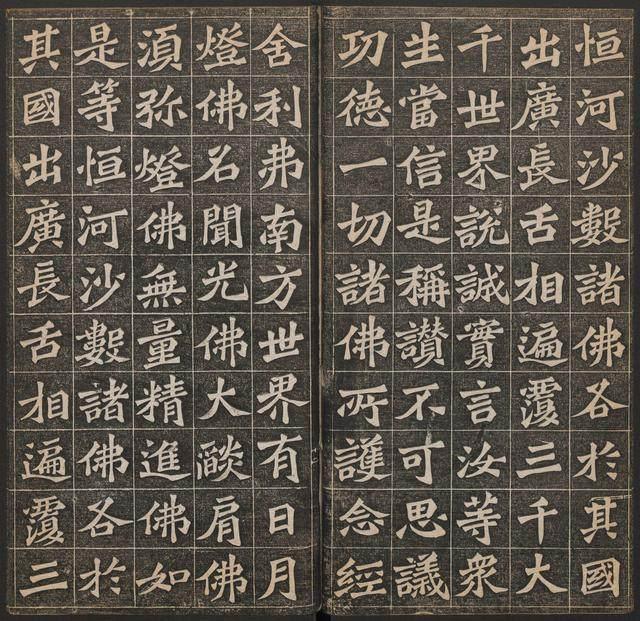 恒河沙數諸佛各於其國
出廣長舌相遍覆三千大
千世界說誠實言汝等衆
生當信是稱讃不可思議
功德一切諸佛所護念經
舍利弗南方世界有日月
燈佛名聞光佛大燄肩佛
湏弥燈佛無量精進佛如
是等恒河沙數諸佛各於
其國出廣長舌相遍覆三